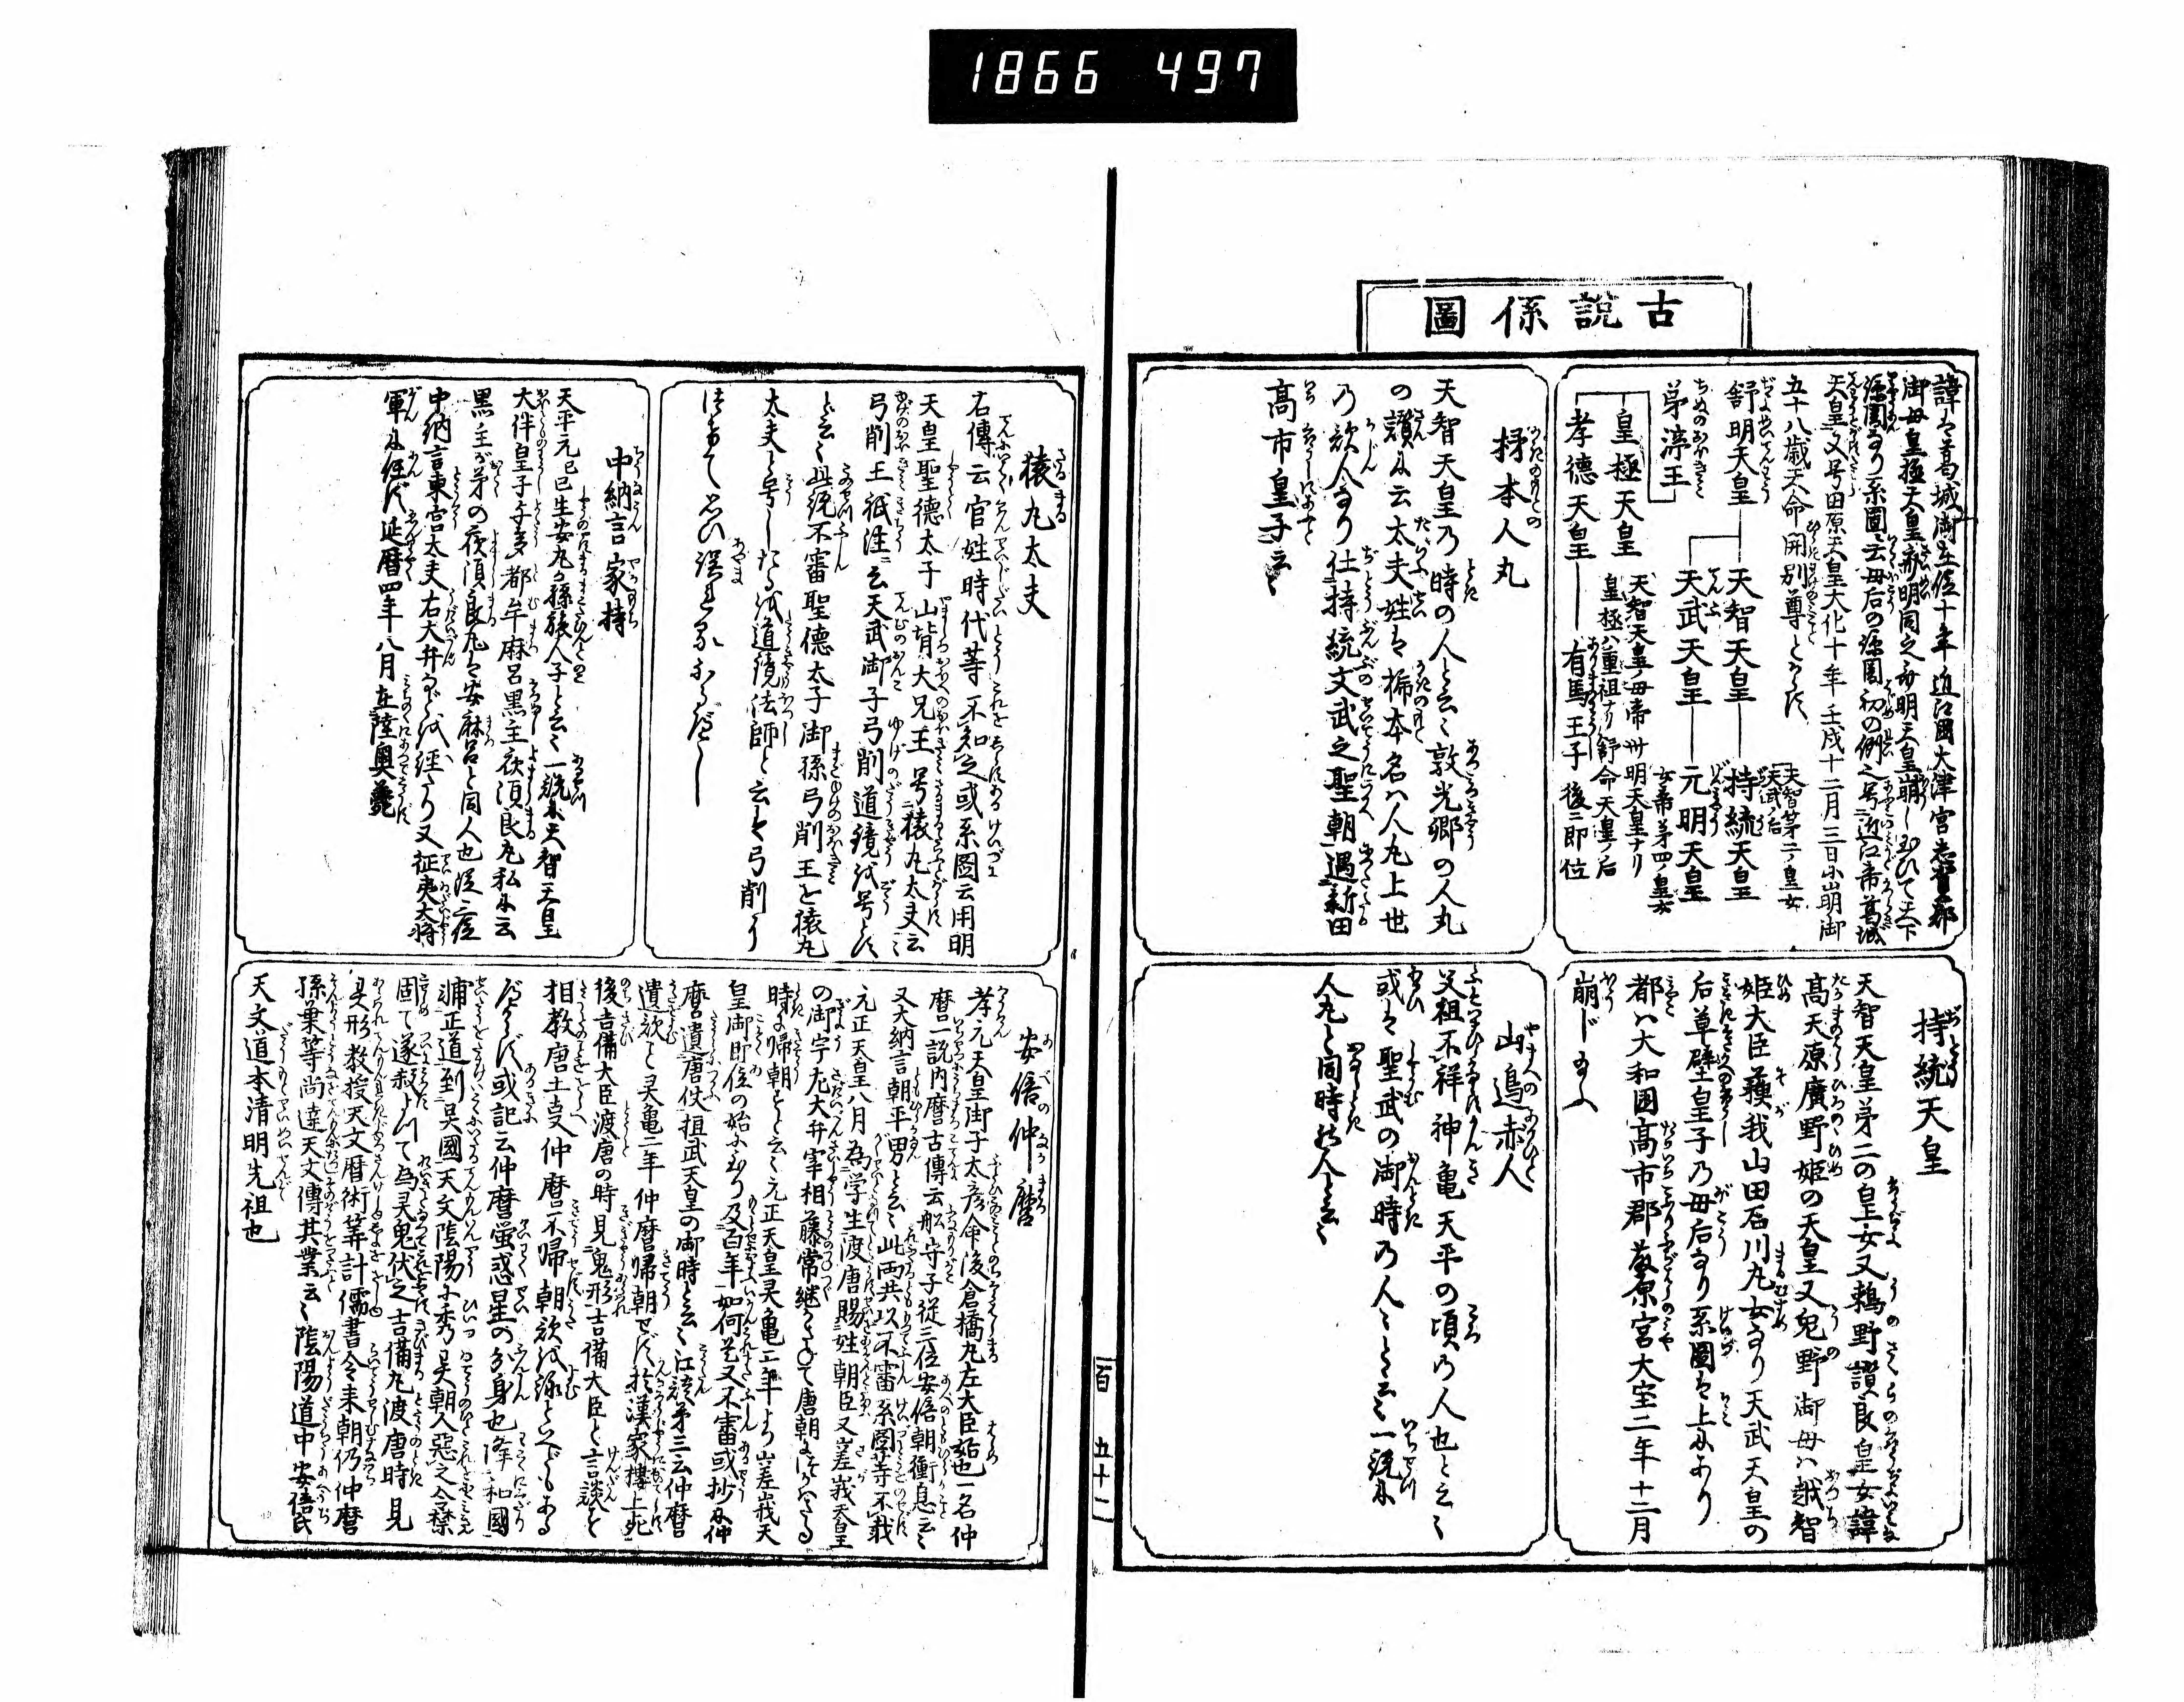 1866 497
古説係圖
諱は葛城御在位十年近江國大津宮志賀郡
御母皇極天皇齊明同之舒明天皇崩し玉ひて天下
諒闇なり系圖云母后の諒闇初の例之号近江帝葛城
天皇又号田原天皇大化十年壬戌十二月三日に崩御
五十八歳天命開別尊とかうす
舒明天皇
天智天皇
持統天皇
天智第二ノ皇女
天武ノ后
天武天皇
元明天皇
女帝第四ノ皇女
茅渟王
皇極天皇
天智天皇ノ母帝卅明天皇ナリ
皇極ハ重祖ナリ舒命天皇ノ后
孝徳天皇
有馬王子
後ニ即位
持統天皇
天智天皇第二の皇女又鵜野讃良皇女諱
高天原廣野姫の天皇又兔野御母ハ越智
姫大臣蘓我山田石川丸女なり天武天皇の
后草壁皇子乃母后なり系圖は上にあり
都ハ大和國高市郡藤原宮大宝二年十二月
崩じ玉ふ
柹本人丸
天智天皇乃時の人と云々敦光郷の人丸
の讃に云太夫姓は柹本名ハ人丸上世
乃歌人なり仕持統文武之聖朝遇新田
高市皇子云々
山邉赤人
父祖不祥神亀天平の頃乃人也と云々
或は聖武の御時乃人々と云々一説に
人丸と同時の人と云々
猿丸太夫
右傳云官姓時代等不知之或系圖云用明
天皇聖徳太子山背大兄王号猿丸太夫云々
弓削王祇注ニ云天武御子弓削道鏡を号す
と云々此説不審聖徳太子御孫弓削王を猿丸
太夫と号したるを道鏡法師と云は弓削に
つきて思ひ誤れるなるべし
中納言家持
天平元己巳生安丸孫旅人子と云々一説に天智天皇
大伴皇子与多都牟麻呂黒主夜須良丸私に云
黒主が弟の夜須良丸は安麻呂と同人也従二位
中納言東宮太夫右大弁などを経たり又征夷大將
軍に任ず延暦四年八月在陸奥薨
安倍仲麿
孝元天皇御子太彦命後倉橋丸左大臣始也一名仲
麿一説内麿古傳云舩守子従三位安倍朝衡息云々
又大納言朝平男と云々此両共以不審系圖等不載
元正天皇八月為学生渡唐賜姓朝臣又嵯峩天皇
の御宇左大弁宰相藤常継にて唐朝につかはさるゝ
時に帰朝すと云々元正天皇霊亀二年より嵯峩天
皇御即位の始に至り及百年如何是又不審或抄に仲
麿遣唐使桓武天皇の御時と云々江談第三云仲麿
遺歌と霊亀二年仲麿帰朝せず於漢家樓上死
後吉備大臣渡唐の時見鬼形吉備大臣と言談を
相教唐土㕝仲麿不帰朝歌を詠といへどもある
べからず或記云仲麿螢惑星の分身也降和國
補正道到吴國天文陰陽に秀吴朝人惡之令禁
固て遂殺よつて為霊鬼伏之吉備丸渡唐時見
㕝形教授天文暦術等計儒書令来朝仍仲麿
孫葉等尚達天文傳其業云々陰陽道中安倍氏
天文道本清明先祖也
百 五十二